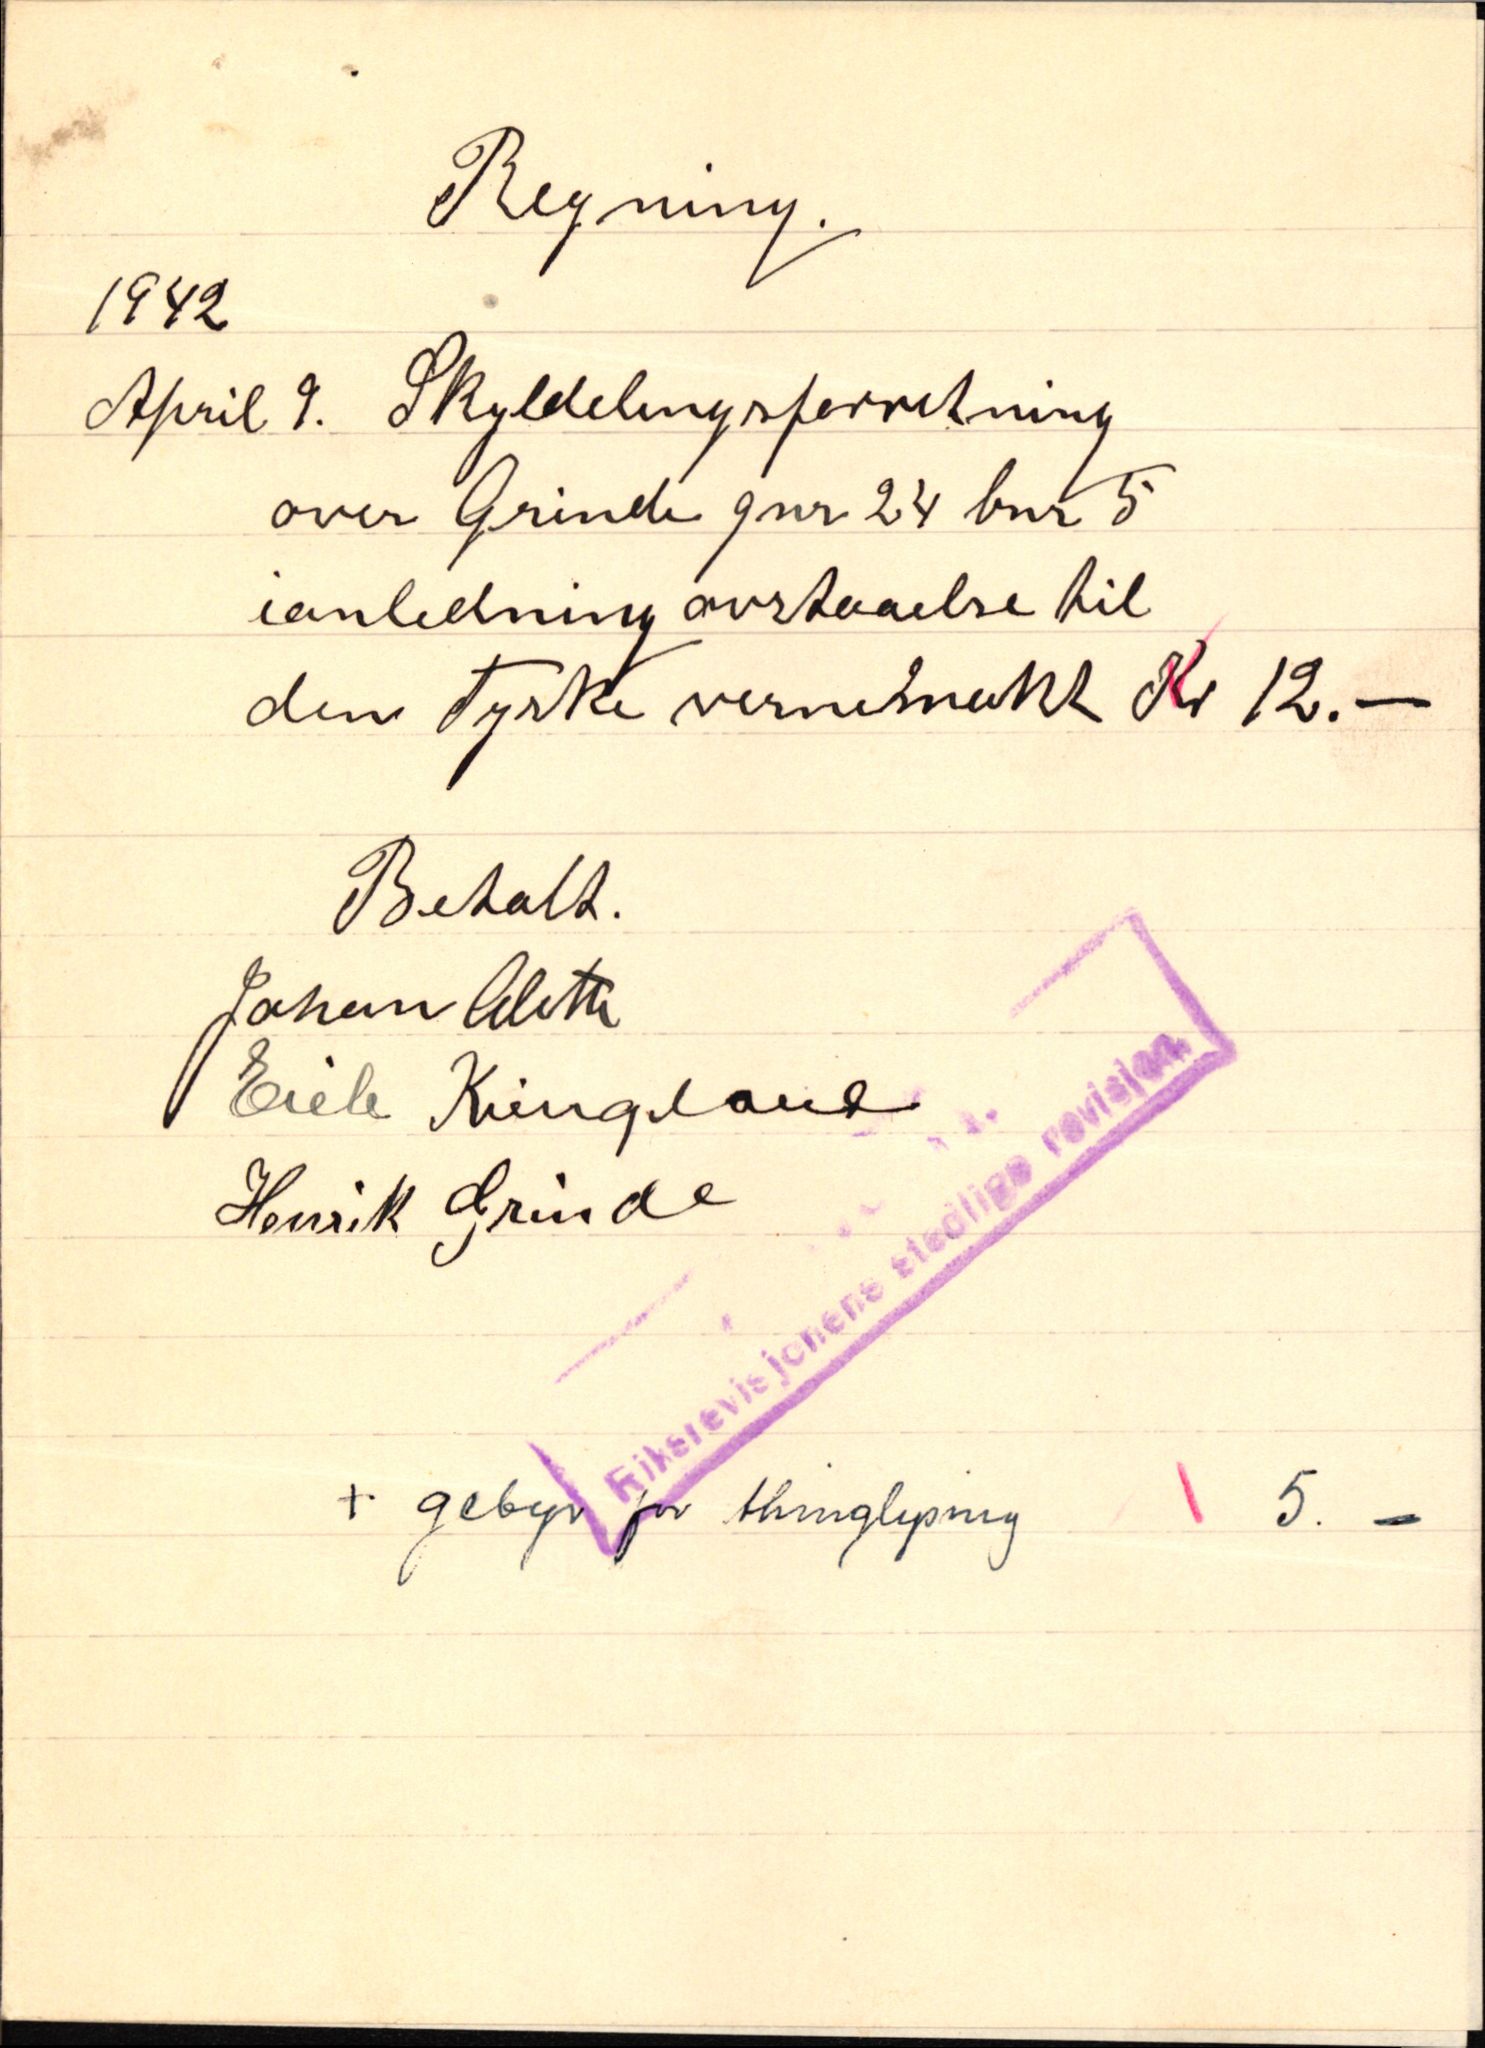 Regning.
1942
April 9. Skyldelingsforretning
over Grinde gnr 24 bnr 5
ianledning avstaaelse til
den Tyske vernemakt Kr 12.—
Betalt.
Johan
Kringeland
Henrik Grinde
Riksrevisjonens stedlige revisjon.
+ gebyr for thinglysning 5. —